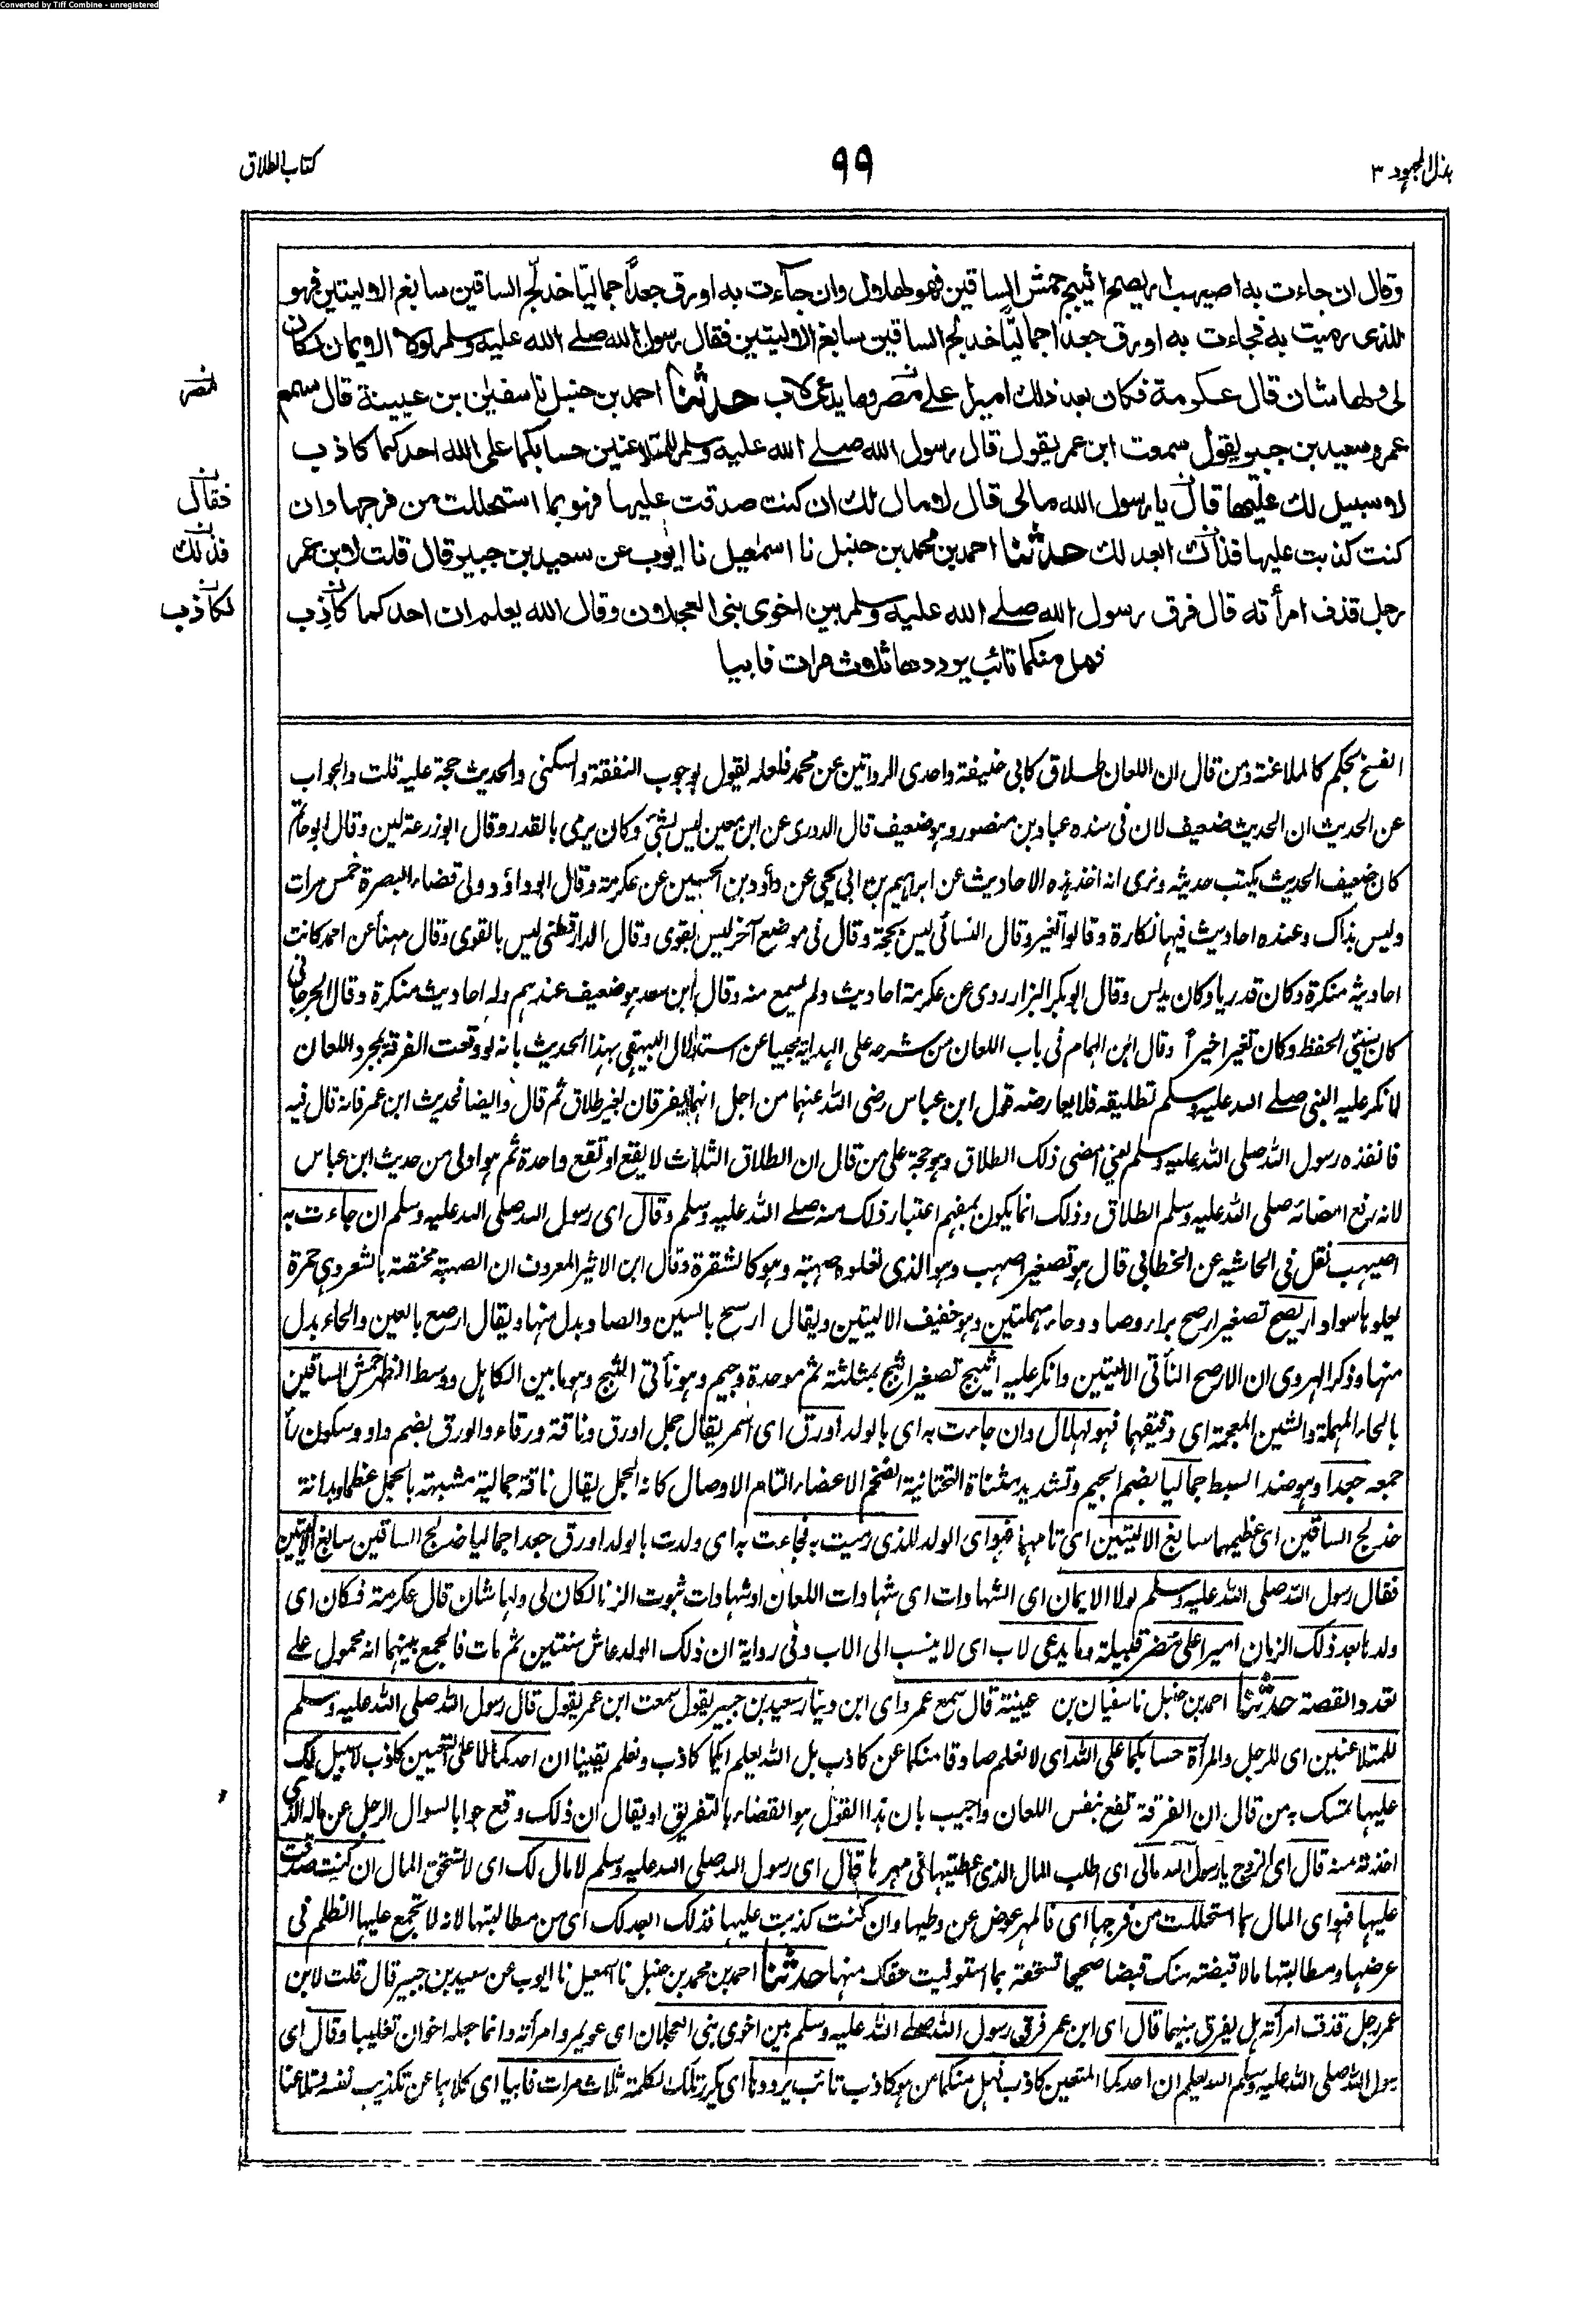 Converted by Tiff Combine - unregistered
بذل المجهود ٣
٩٩
كتاب الطلاق
وقال ان جاءت به اصيهب اريصح اثيبج حمش الساقين فهو لهلال وان جاءت به اورق جعدا جماليا خدلج الساقين سابغ الاليتين فهو
للذى رميت به فجاءت به اورق جعدا جماليا خدلج الساقين سابغ الاليتين فقال رسول الله صلے الله عليه وسلم لولا الايمان لكان
لى ولها شان قال عكرمة فكان بعد ذلك اميرا على مضر وما يدعى لاب حدثنا احمد بن حنبل نا سفين بن عيينة قال سمع
عمرو سعيد بن جبير يقول سمعت ابن عمر يقول قال رسول الله صلے الله عليه وسلم للمتلاعنين حسابكما على الله احدكما كاذب
لا سبيل لك عليها قال يا رسول الله مالى قال لا مال لك ان كنت صدقت عليها فهو بما استحللت من فرجها وان
كنت كذبت عليها فذاك ابعد لك حدثنا احمد بن محمد بن حنبل نا اسمعيل نا ايوب عن سعيد بن جبير قال قلت لابن عمر
رجل قذف امرأته قال فرق رسول الله صلے الله عليه وسلم بين اخوى بنى العجلان وقال الله يعلم ان احدكما كاذب
فهل منكما تائب يرددها ثلاث مرات فابيا
مضر
فقال
فذلك
لكاذب
الفسخ بحكم كالملاعنة ومن قال ان اللعان طلاق كابى حنيفة واحدى الروايتين عن محمد فلعله يقول بوجوب النفقة والسكنى والحديث حجة عليه قلت والجواب
عن الحديث ان الحديث ضعيف لان فى سنده عباد بن منصور وهو ضعيف قال الدورى عن ابن معين ليس بشئ وكان يرمى بالقدر وقال ابو زرعة لين وقال ابو حاتم
كان ضعيف الحديث يكتب حديثه ونرى انه اخذ هذه الاحاديث عن ابراهيم بن ابى يحيى عن داؤد بن الحصين عن عكرمة وقال ابو داؤد ولى قضاء البصرة خمس مرات
وليس بذاك وعنده احاديث فيها نكارة وقالوا تغير وقال النسائى ليس بحجة وقال فى موضع آخر ليس بقوى وقال الدارقطنى ليس بالقوى وقال مهنأ عن احمد كانت
احاديثه منكرة وكان قدريا وكان يدلس وقال ابو بكر البزار روى عن عكرمة احاديث ولم يسمع منه وقال ابن سعد هو ضعيف عندهم وله احاديث منكرة وقال الجرجانى
كان سيئ الحفظ وكان تغير اخيرا وقال ابن الهمام فى باب اللعان من شرحه على الهداية مجيبا عن استدلال البيهقى بهذا الحديث بانه لو وقعت الفرقة بمجرد اللعان
لانكر عليه النبى صلے الله عليه وسلم تطليقه فلا يعارضه قول ابن عباس رضى الله عنهما من اجل انهما يفترقان بغير طلاق ثم قال وايضا فحديث ابن عمر فانه قال فيه
فانفذه رسول الله صلى الله عليه وسلم يعنى امضى ذلك الطلاق وهو حجة على من قال ان الطلاق الثلاث لا يقع او تقع واحدة ثم هو اولى من حديث ابن عباس
لانه رفع امضائه صلى الله عليه وسلم الطلاق وذلك انما يكون بمفهم اعتبار ذلك منه صلے الله عليه وسلم وقال اى رسول الله صلى الله عليه وسلم ان جاءت به
اصيهب نقل فى الحاشيه عن الخطابى قال هو تصغير اصهب وهو الذى تعلوه صهبة وهو كالشقرة وقال ابن الاثير المعروف ان الصهبة مختصة بالشعر وهى حمرة
يعلوها سواد اريصح تصغير ارصح براء وصاد وحاء مهملتين وهو خفيف الاليتين ويقال ارسح بالسين والصاد بدل منها ويقال ارصع بالعين والحاء بدل
منها وذكر الهروى ان الارصح الناتى الاليتين وانكر عليه اثيبج تصغير اثبج بمثلثة ثم موحدة وجيم وهو ناتى الثبج وهو ما بين الكاهل ووسط الظهر حمش الساقين
بالحاء المهملة والشين المعجمة اى دقيقهما فهو لهلال وان جاءت به اى بالولد اورق اى اسمر يقال جمل اورق وناقة ورقاء والورق بضم واو وسكون راء
جمعه جعدا وهو ضد السبط جماليا بضم الجيم وتشديد مثناة التحتانية الضخم الاعضاء التام الاوصال كانه الجمل يقال ناقة جمالية مشبهة بالجمل عظما وبدانة
خدلج الساقين اى عظيمهما سابغ الاليتين اى تامهما فهو اى الولد للذى رميت به فجاءت به اى ولدت بالولد اورق جعدا جماليا خدلج الساقين سابغ الاليتين
فقال رسول الله صلى الله عليه وسلم لولا الايمان اى الشهادات اى شهادات اللعان او شهادات ثبوت الزنا لكان لى ولها شان قال عكرمة فكان اى
ولدها بعد ذلك الزمان اميرا على مضر قبيلة وما يدعى لاب اى لا ينسب الى الاب وفى رواية ان ذلك الولد عاش سنتين ثم مات فالجمع بينهما انه محمول علے
تعدد القصة حدثنا احمد بن حنبل نا سفيان بن عيينة قال سمع عمرو اى ابن دينار سعيد بن جبير يقول سمعت ابن عمر يقول قال رسول الله صلى الله عليه وسلم
للمتلاعنين اى للرجل والمرأة حسابكما على الله اى لا نعلم صادقا منكما عن كاذب بل الله يعلم ايكما كاذب ونعلم يقينا ان احدكما لا على التعيين كاذب لا سبيل لك
عليها تمسك به من قال ان الفرقة تقع بنفس اللعان واجيب بان هذا القول هو القضاء بالتفريق او يقال ان ذلك وقع جوابا لسوال الرجل عن ماله الذى
اخذته منه قال اى الزوج يا رسول الله مالى اى اطلب المال الذى اعطيتها فى مهرها قال اى رسول الله صلى الله عليه وسلم لا مال لك اى لا تستحق المال ان كنت صدقت
عليها فهو اى المال بما استحللت من فرجها اى فالمهر عوض عن وطيها وان كنت كذبت عليها فذلك ابعد لك اى من مطالبتها لانه لا تجمع عليها الظلم فى
عرضها ومطالبتها مالا قبضته منك قبضا صحيحا تستحقه بما استوفيت حقك منها حدثنا احمد بن محمد بن حنبل نا اسمعيل نا ايوب عن سعيد بن جبير قال قلت لابن
عمر رجل قذف امرأته هل يفرق بينهما قال اى ابن عمر فرق رسول الله صلے الله عليه وسلم بين اخوى بنى العجلان اى عويمر وامرأته وانما جعله اخوان تغليبا وقال اى
رسول الله صلى الله عليه وسلم الله يعلم ان احدكما المتعين كاذب فهل منكما من هو كاذب تائب يرددها اى يكرر تلك الكلمة ثلاث مرات فابيا اى كلاهما عن تكذيب نفسه وتلاعنا